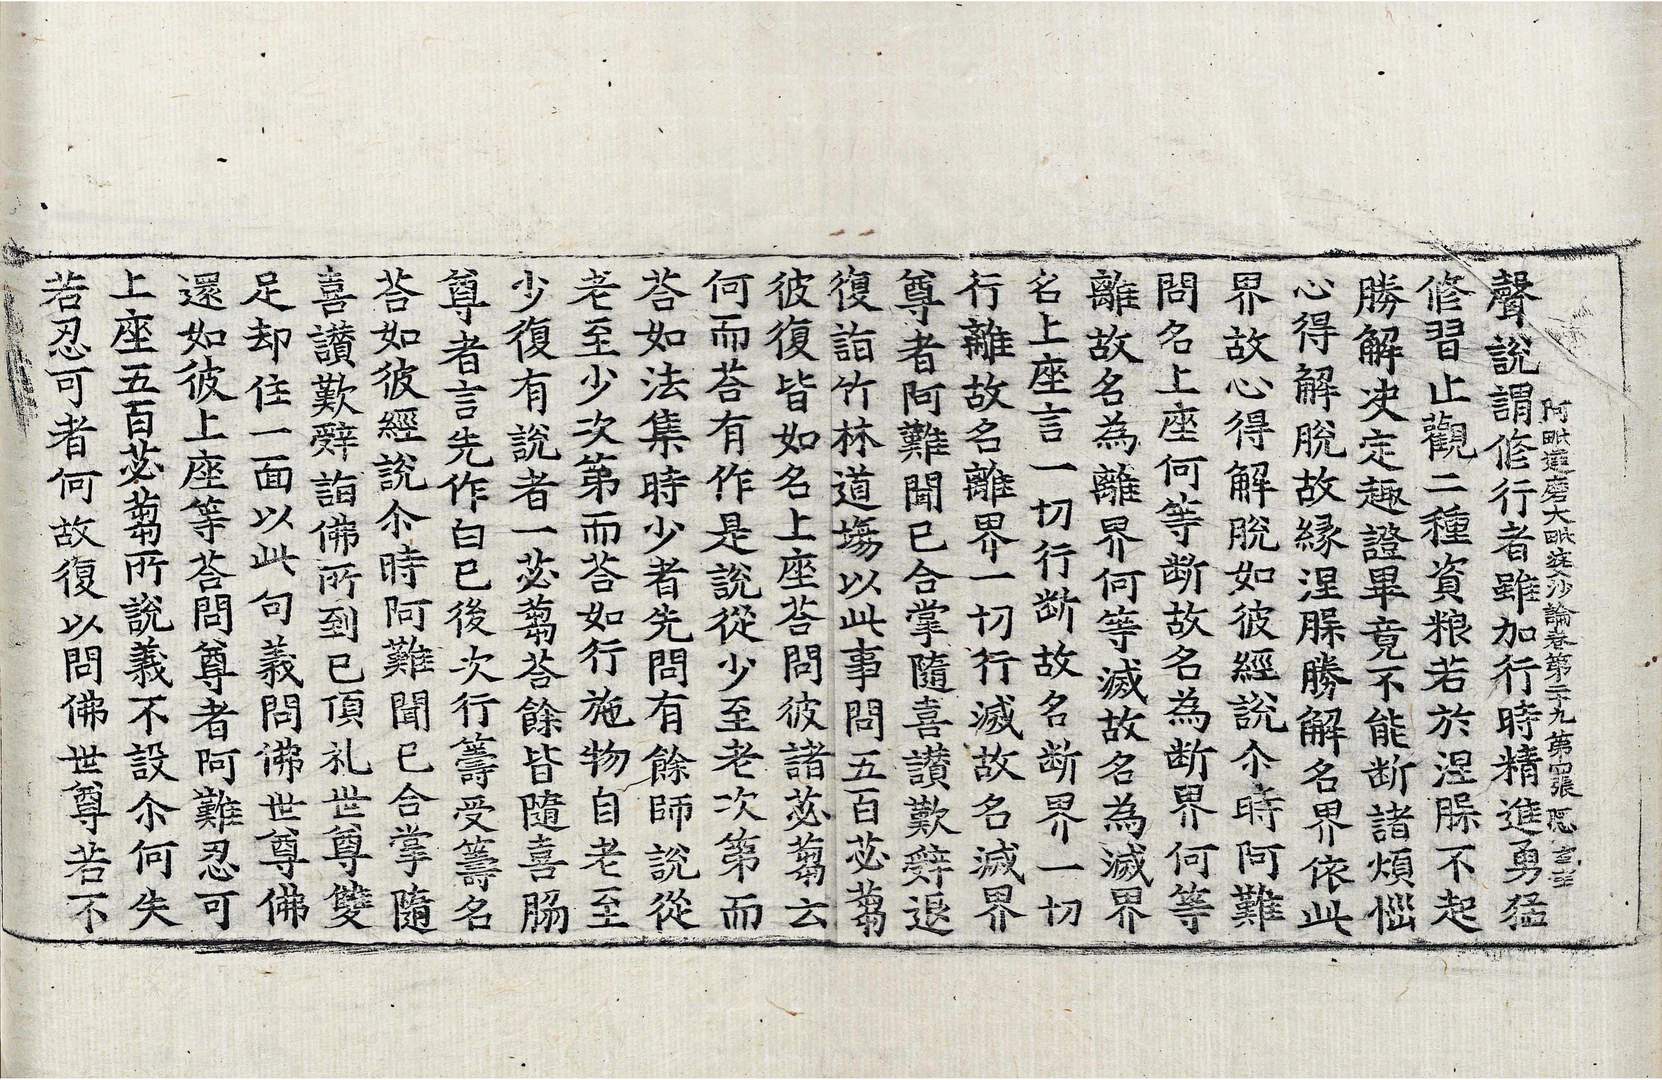 阿毗達磨大毗婆沙論卷第二十九 第四張
聲說謂修行者雖加行時精進勇猛
修習止觀二種資粮若於涅槃不起
勝解决定趣證畢竟不能斷諸煩惱
心得解脫故緣涅槃勝解名界依此
界故心得解脫如彼經說尒時阿難
問名上座何等斷故名為斷界何等
離故名為離界何等滅故名為滅界
名上座言一切行斷故名斷界一切
行離故名離界一切行滅故名滅界
尊者阿難聞已合掌隨喜讚歎辭退
復詣竹林道場以此事問五百苾芻
彼復皆如名上座荅問彼諸苾芻云
何而荅有作是說從少至老次第而
荅如法集時少者先問有餘師說從
老至少次第而荅如行施物自老至
少復有說者一苾芻荅餘皆隨喜脇
尊者言先作白已後次行籌受籌名
荅如彼經說尒時阿難聞已合掌隨
喜讚歎辭詣佛所到已頂礼世尊雙
足却住一面以此句義問佛世尊佛
還如彼上座等荅問尊者阿難忍可
上座五百苾芻所說義不設尒何失
若忍可者何故復以問佛世尊若不